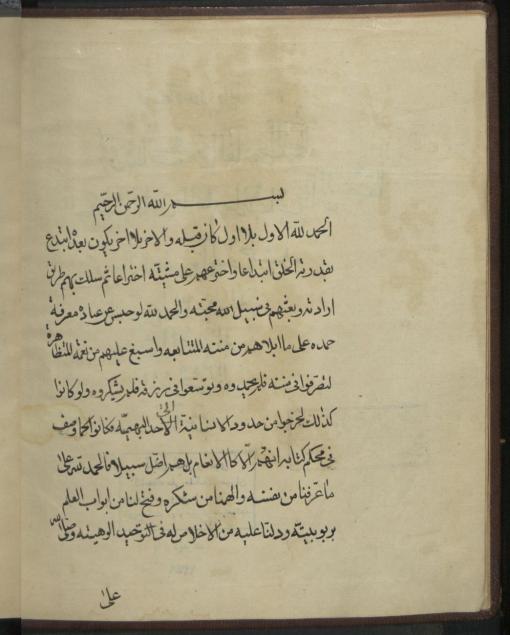 بسم الله الرحمن الرحيم
الحمد لله الاول بلا اول كان قبله والاخر بلا اخر يكون بعده ابتدع
بقدرته الخلق ابتداعا واخترعهم على مشيته اختراعا ثم سلك بهم طريق
ارادته وبعثهم فى سبيل محبته والحمد لله لو حبس عن عباده معرفة
حمده على ما ابلاهم من مننه المتتابعه واسبغ عليهم من نعمه المتظاهرة
لتصرفوا فى مننه فلم يحمدوه وتوسعوا فى رزقه فلم يشكروه ولو كانوا
كذلك لخرجوا من حدود الانسانية الى حد البهيميه فكانوا كما وصف
فى محكم كتابه ان هم الا كالانعام بل هم اضل سبيلا والحمد لله على
ما عرفنا من نفسه والهمنا من شكره وفتح لنا من ابواب العلم
بربوبيته ودلنا عليه من الاخلاص له فى التوحيد
على